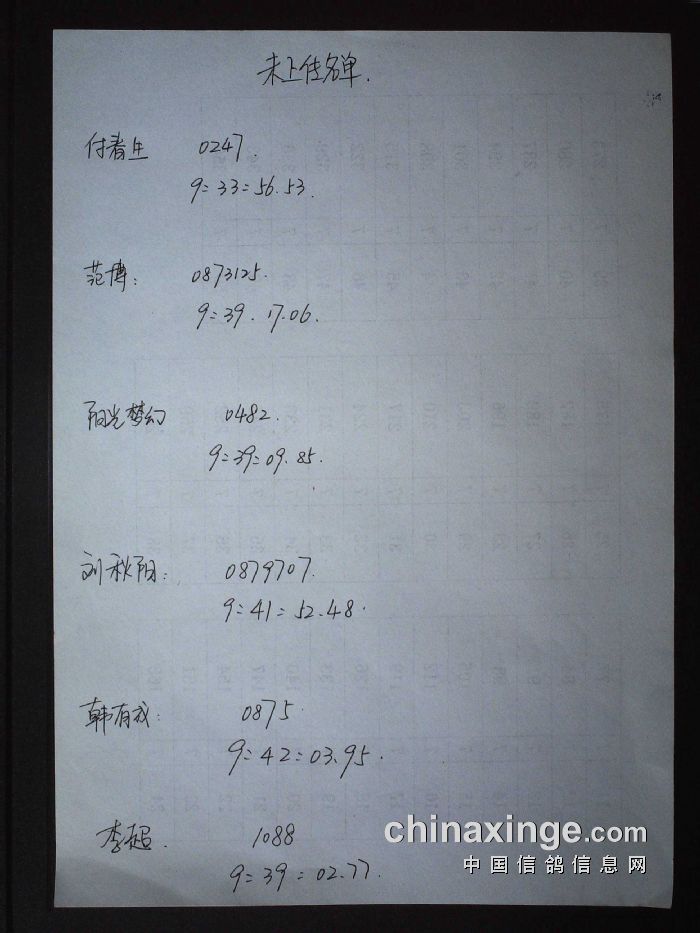 未上传名单.
付春生 0247.
9:33:56.53.
范博: 0873125.
9:39.17.06.
阳光梦幻 0482.
9:39:09.85.
刘秋阳: 0879707.
9:41:52.48.
韩有成: 0875.
9:42:03.95.
李超. 1088
9:39:02.77.
chinaxinge.com
中国信鸽信息网